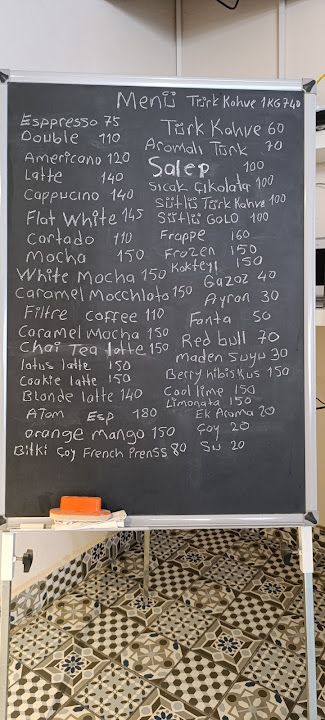 Menü Türk Kahve 1KG740
Esppresso 75
Double 110
Americano 120
Latte 140
Cappucino 140
Flat White 145
Cortado 110
Mocha 150
White Mocha 150
Caramel Macchlato 150
Filtre coffee 110
Caramel Mocha 150
Chai Tea latte 150
lotus latte 150
Cookie latte 150
Blonde latte 140
ATom Esp 180
orange mango 150
Bitki Çoy French Prenss 80
Türk Kahve 60
Aromalı Türk 70
Salep 100
Sıcak Çikolata 100
Sütlü Türk Kahve 100
Sütlü GOLO 100
Frappe 160
Frozen 150
Kokteyl 150
Gazoz 40
Ayran 30
Fanta 50
Red bull 70
maden Suyu 30
Berry hibiskus 150
Cool lime 150
Limonata 150
Ek Aroma 20
Çoy 20
Su 20